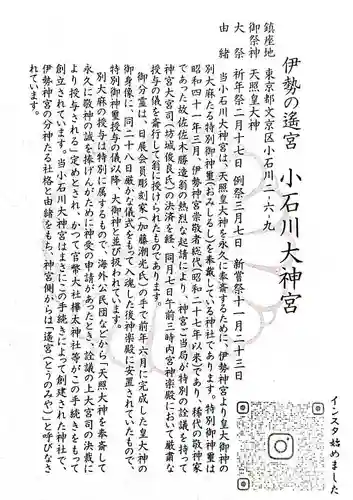 伊勢の遙宮　小石川大神宮
鎮座地　東京都文京区小石川二-六-九
御祭神　天照皇大神
大祭　祈年祭二月十七日　例祭三月七日　新嘗祭十一月二十三日
由緒　当小石川大神宮は、天照皇大神を永久に奉斎するために、伊勢神宮より皇大御神の
別大麻たる特別御神璽(おみしるし)を奉戴している神社であります。特別御神璽は
昭和四十一年三月、伊勢神宮崇敬者総代昭和二年以来であり、稀代の敬神家
であった故佐佐木勝造翁の熱烈な起請により、神宮ご当局が特別の詮議を持って
神宮大宮司(坊城俊良氏)の決済を経、同月七日午前三時内宮神楽殿において厳粛な
授与の儀を斎行して翁に授けられたものであります。
御分霊は、日展会員彫刻家(加藤潮光氏)の手で前年六月に完成した皇大神の
御身像に、同二十八日厳かな儀式をもって入魂した後神楽殿に安置されていたもので、
特別御神璽授与の儀以降、大御神と並び祝われています。
別大麻の授与は特別に属するもので、海外公民団などから「天照大神を奉斎して
永久に敬神の誠を捧げんがために神受の申請があったとき、詮議の上大宮司の決裁に
より授与される」定めとされ、かつて官幣大社樺太神社等がこの手続きをもって
創立されています。当小石川大神宮はまさにこの手続きによって創建された神社で、
伊勢神宮の分神たる社格と由緒をもち、神宮側からは「遙宮(とうのみや)」と呼びなさ
れています。
インスタ始めました